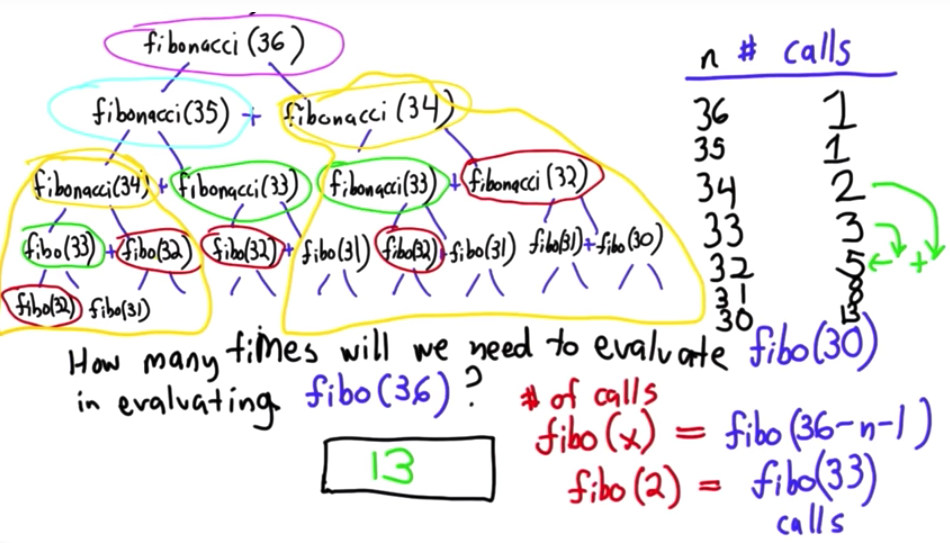 fibonacci (36)
fibonacci (35) + fibonacci (34)
fibonacci (34) + fibonacci (33) fibonacci (33) + fibonacci (32)
fibo (33) + fibo(32) fibo(32) + fibo(31) fibo(32) + fibo(31) fibo(31) + fibo(30)
fibo(32) fibo(31)
n # calls
36 1
35 1
34 2
33 3
32 5 +
31 8
30 13
How many times will we need to evaluate fibo(30)
in evaluating fibo(36)?
13
# of calls
fibo (x) = fibo (36-n-1)
fibo (2) = fibo(33)
calls